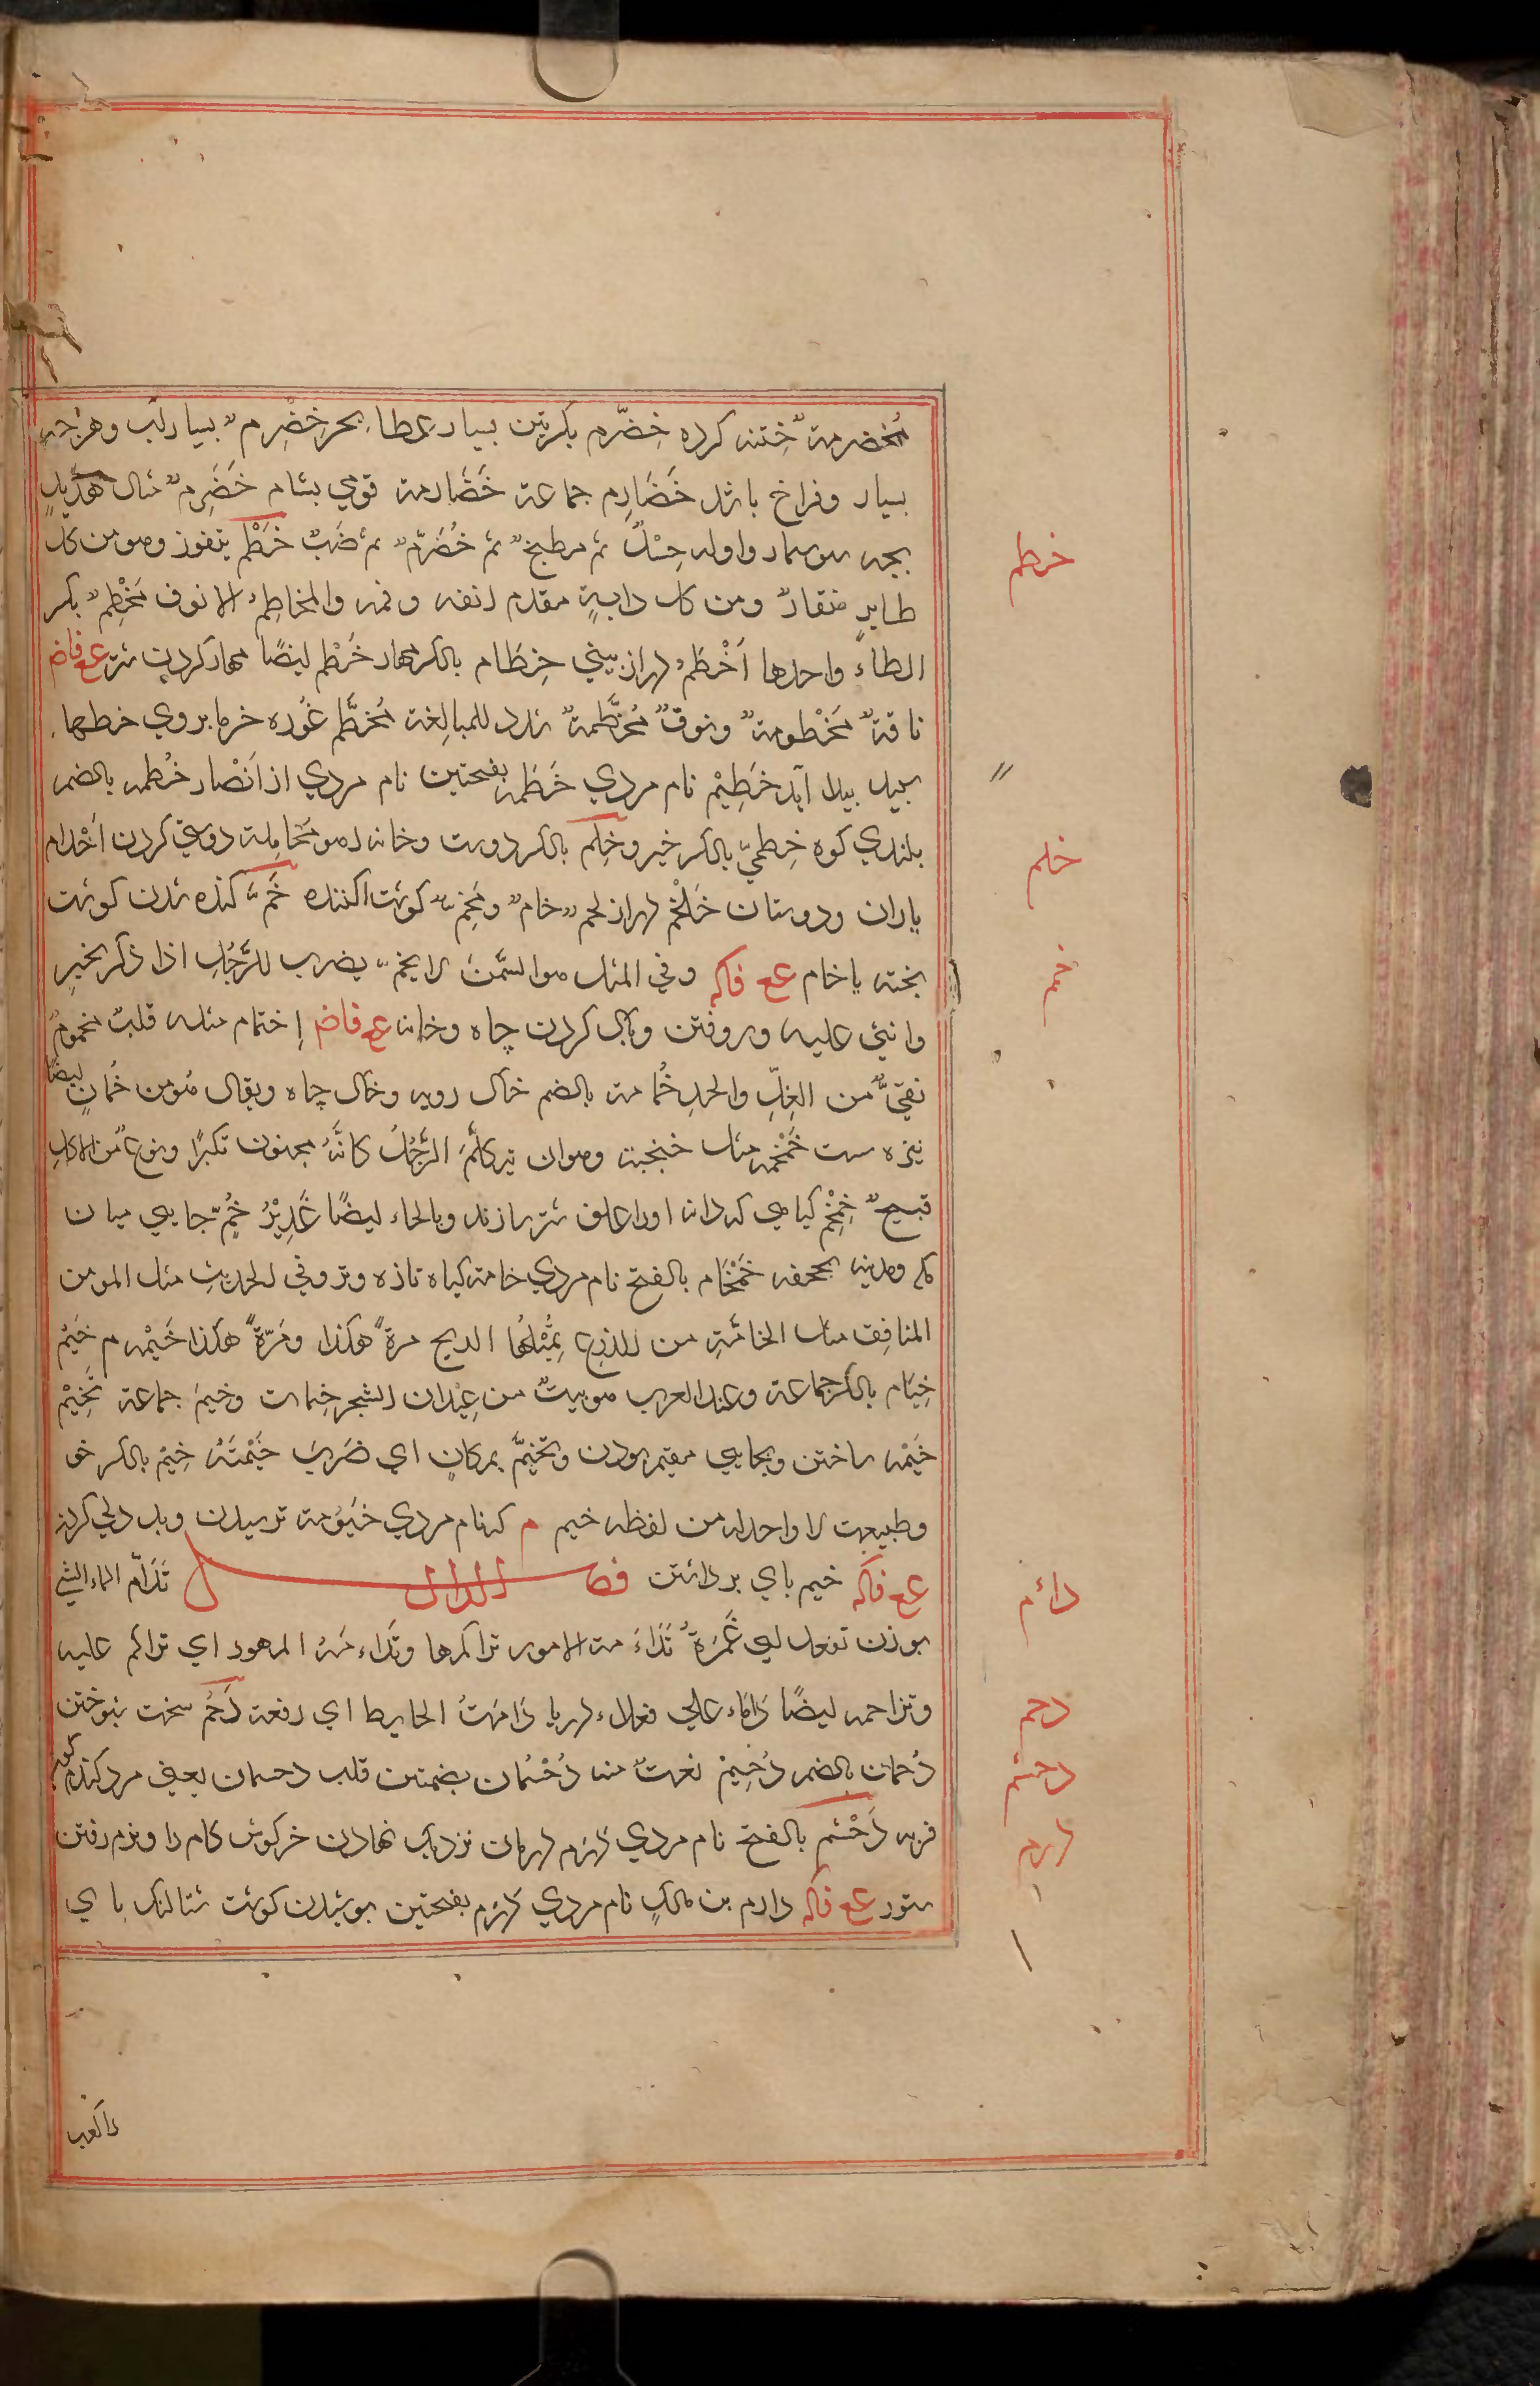 مُخضرمة ختنه كرده خِضّرم بكرتين بسيار عطا بحر خِضْرِم بسيار آب وهرچه
بسيار وفراخ باشد خَضَارِم جماعة خَضَارمة قومي بشام خُضَرِم مثال هُدَبِدٍ
بچه سوسمار واوله حِسْلٌ ثم مطبخ ثم خُضَرِم ثم ضَبٌّ خَطْم يتفوز وهو من كل
طايرٍ منقارٌ ومن كل دابةٍ مقدم انفه وفمه والمخاطِم الانوف مَخْطِم بكسر
الطاء واحدها اَخْطَمُ دراز بيني خِطَام بالكسر مهار خَطْم ايضًا مهار كردن شتر ع ع فاض
ناقة مَخْطومة ونوق مُخَطَّمة شدد للمبالغة مُخَطَّم غُوره خرما بروي خطها
سپيد پيدا آيد خَطِيْم نام مردي خَطَمه بفتحتين نام مردي از اَنْصار خُطمه بالضم
بلندي كوه خِطميّ بالكسر خيرو خِلم بالكسر دوست وخانه آهو مُخالمة دوستي كردن اَخْلام
ياران ودوستان خَلْجَم دراز لحم خام ومُخِمّ كوشت اكنده خَمّ كنده شدن كوشت
پخته يا خام ع ع فاكه وفي المثل هو السَّمنُ لا يخمّ يضرب للرَّجُلِ اذا ذكر بخيرٍ
واثني عليه وروفتن وپاك كردن چاه وخانه ع ع فاض اِختمام مثله قلبٌ مخمومٌ
نقيٌّ من الغِلِّ والحسدِ خُمامة بالضم خاك روبه وخاك چاه ويقال هُو من خُمانٍ ايضًا
نيزه سست خَمْخمه مثل خنخنة وهو ان يتكلّمَ الرَّجُلُ كانَّهُ مجنون تكبرًا ونوعٌ من الاكلِ
قبيح خِمْخِم كياهي كه دانه اورا علف شتر سازند وبالحاء ايضًا غَدِيْرُ خُمٍّ جايي ميان
مكه ومدينه بجحفه خَمْخَام بالفتح نام مردي خامة كياه تازه وتر وفي الحديث مثل المومن
المنافِق مثل الخامَةِ من الزرع يُمَيِّلُهَا الريح مرةً هكذا ومَرّةً هكذا خَيْمه م خَيْمُ
خِيَام بالكسر جماعة وعند العرب هو بيتٌ من عِيْدان الشجر خيمات وخيم جماعة تخْيِيْم
خَيْمه ساختن وبجايي مقيم بودن وتَخيَّمَ بمكانٍ اي ضَرَبَ خَيْمَتَهُ خِيْم بالكسر خو
وطبيعت لا واحد له من لفظه خيم م كه نام مردي خَيْوُمة ترسيدن وبد دلي كردن
ع ع فاكه خيم پاي برداشتن فصل الدال تَدَاْم الماء الشيَ
بوزن تفعل اي غَمَرَهُ تَدَاءَمته الامور تراكمها وتداءَمَهُ المهور اي تراكم عليه
وتزاحمه ايضًا دَاْماء علي فعلاء دريا دَاَمْتُ الحايط اي دفعته دَحْم سخت سپوختن
دُحمان بالضم دُحِيْم نعت منه دُحْسُمان بضمتين قلب دحمسان يعني مرد كندم كون
فربه دَخْشَم بالفتح نام مردي دَرَم دَرَمان نزديك نهادن خركوش كام را ونرم رفتن
ستور ع ع فاكه دارم بن مالك نام مردي دَرَم بفتحتين پوشيدن كوشت شتالنك پاي
خرطم
خلم
خم
دائم
دحم
دحثم
درم
را كعب